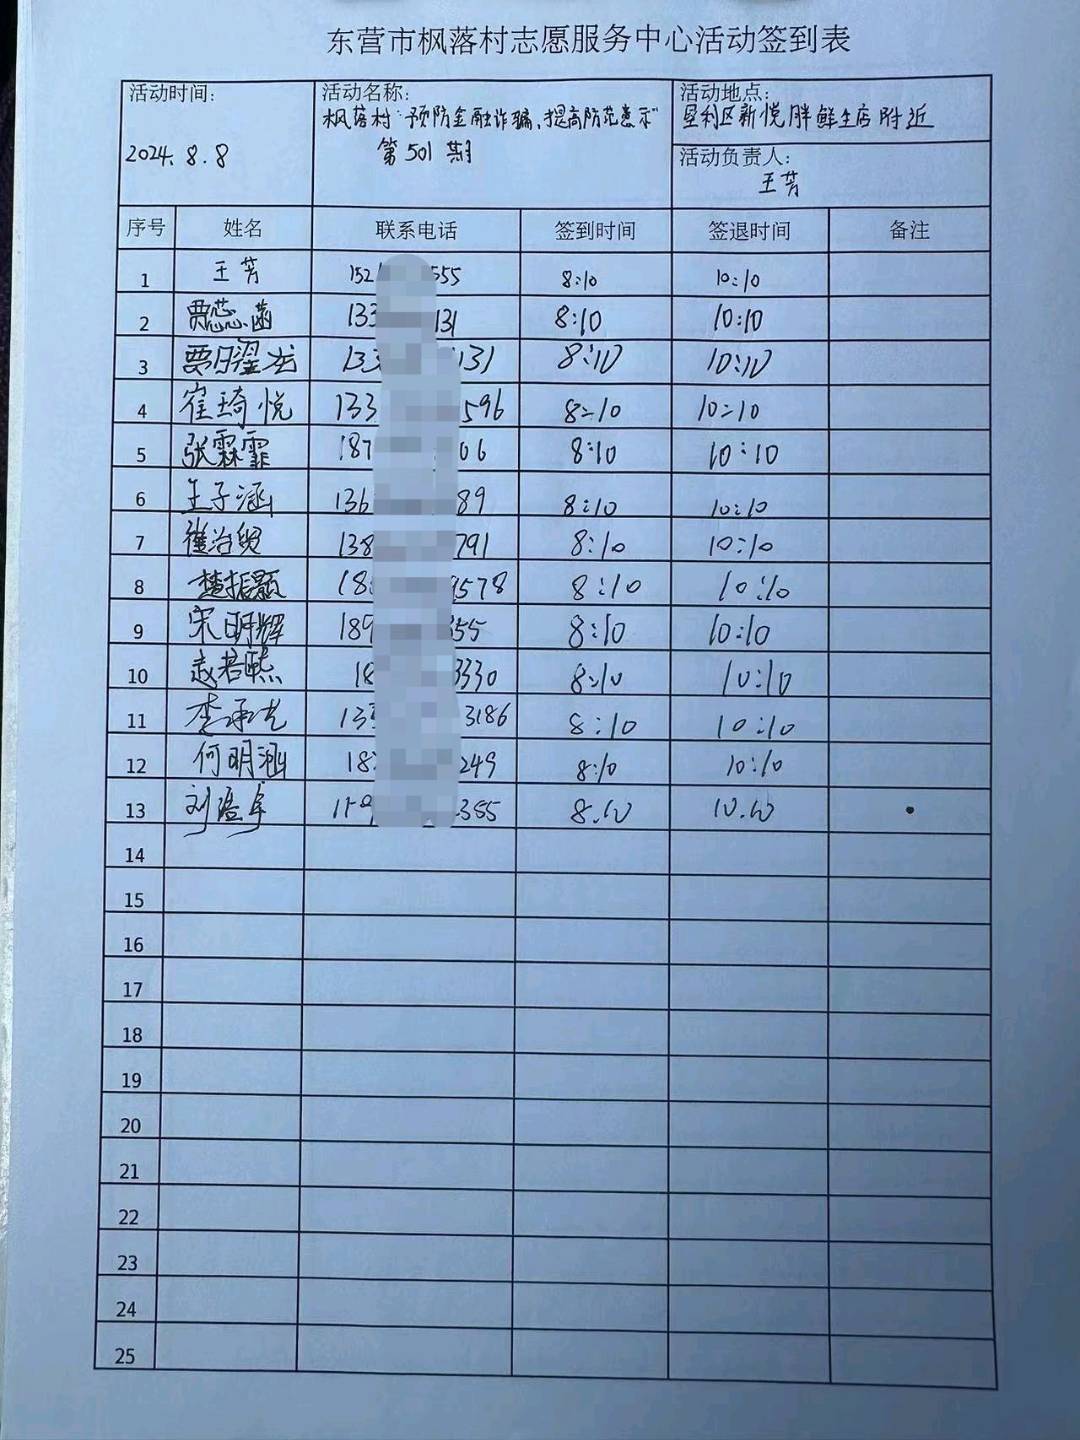 东营市枫落村志愿服务中心活动签到表
活动时间:
2024.8.8
活动名称:
枫落村“预防金融诈骗、提高防范意识”
第501期
活动地点:
垦利区新悦胖鲜生店附近
活动负责人:
王芳
序号 姓名 联系电话 签到时间 签退时间 备注
1 王芳 152 555 8:10 10:10
2 贾蕊菡 133 131 8:10 10:10
3 贾 133 131 8:10 10:10
4 崔琦悦 133 596 8:10 10:10
5 张霖霏 187 06 8:10 10:10
6 王子涵 136 89 8:10 10:10
7 崔 138 791 8:10 10:10
8 楚振颢 18 9578 8:10 10:10
9 宋明辉 189 355 8:10 10:10
10 赵若熙 18 3330 8:10 10:10
11 李承 13 3186 8:10 10:10
12 何明涵 18 249 8:10 10:10
13 刘 159 355 8.10 10.10
14
15
16
17
18
19
20
21
22
23
24
25